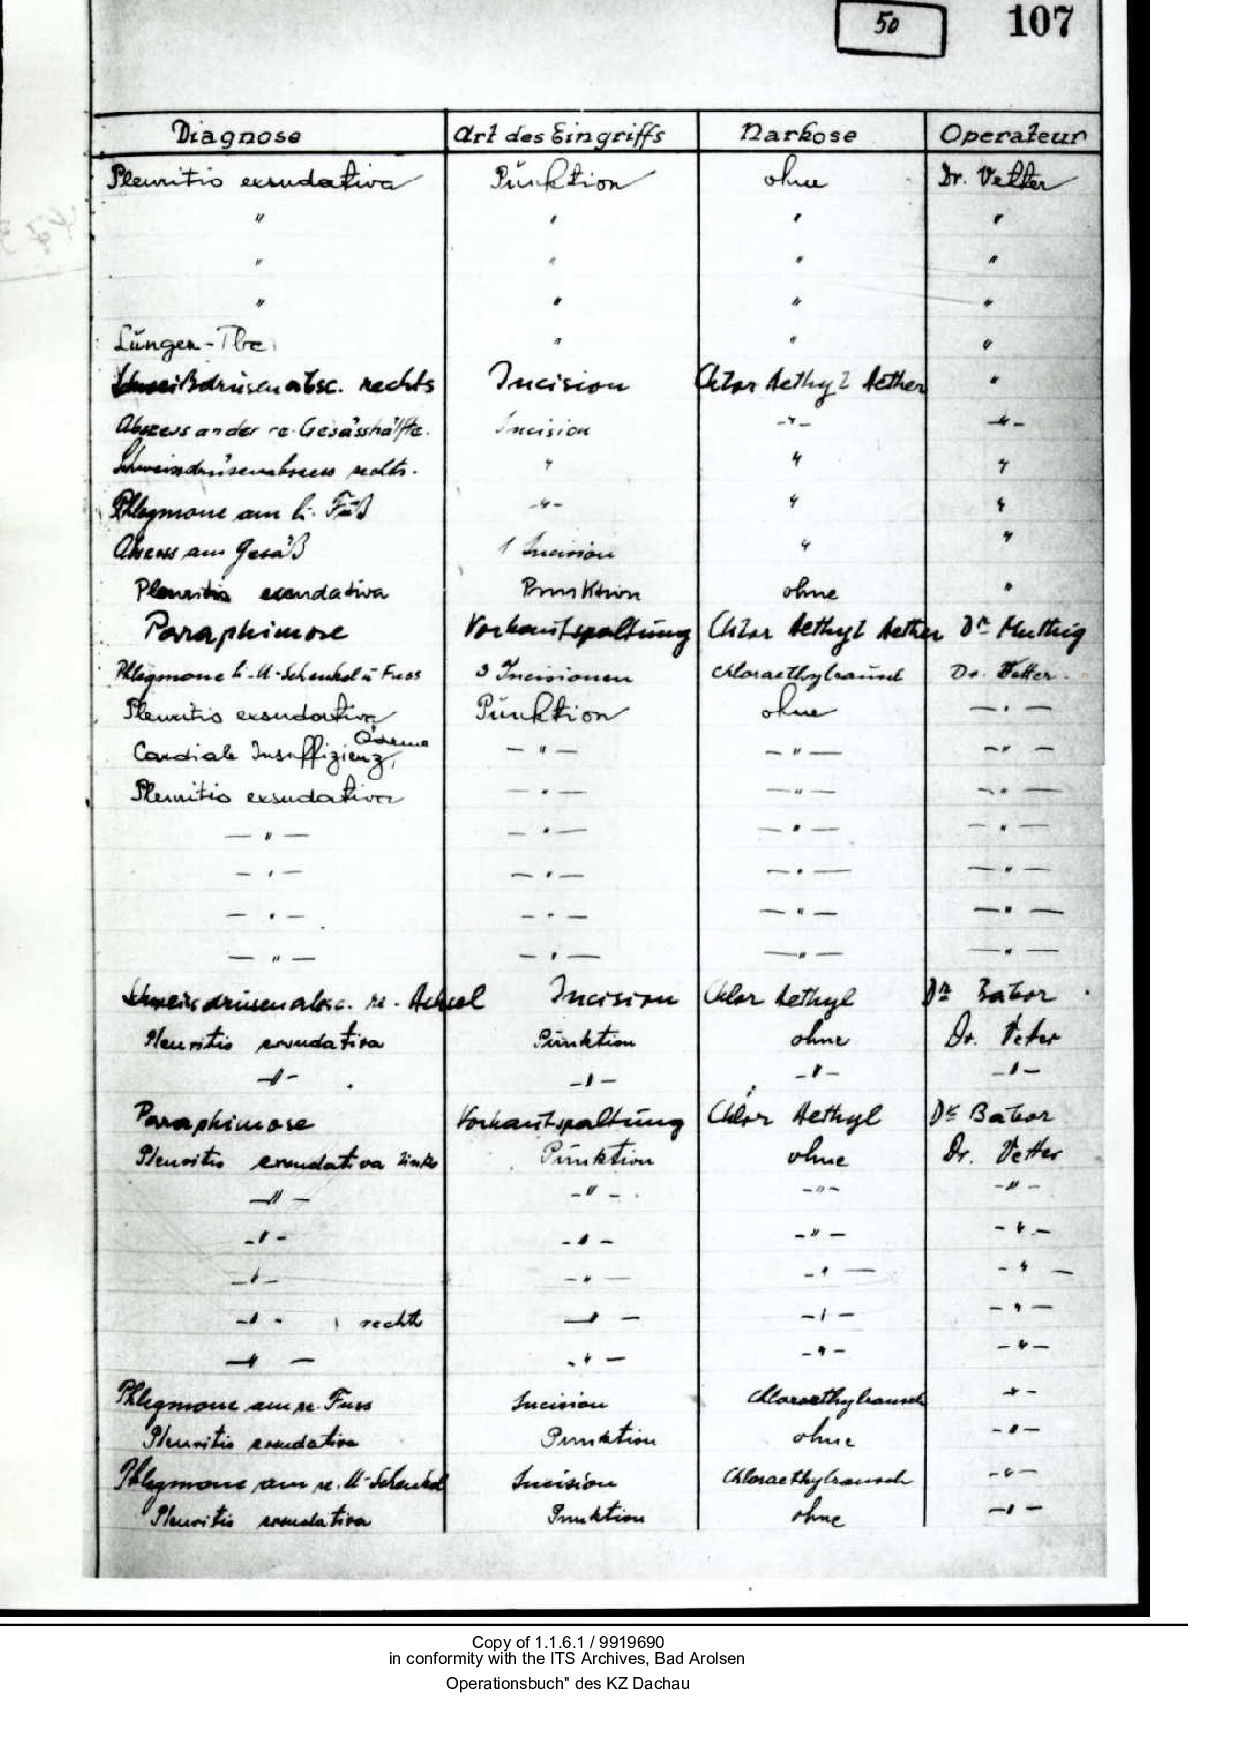 50 107
Diagnose Art des Eingriffs Narkose Operateur
Pleuritis exsudativa Punktion ohne Dr. Vetter
" " " "
" " " "
" " " "
Lungen-Tbc. " " "
Schweißdrüsenabsc. rechts Incision Chlor Aethyl Aether "
Abscess an der re. Gesässhälfte. Incision -"- -"-
Schweissdrüsenabscess rechts. " " "
Phlegmone am li. Fuß -"- " "
Abscess am Gesäß 1 Incision " "
Pleuritis exsudativa Punktion ohne "
Paraphimose Vorhautspaltung Chlor Aethyl Aether Dr Muthig
Phlegmone li. U-Schenkel u Fuss 3 Incisionen Chloraethylrausch Dr. Vetter.
Pleuritis exsudativa Punktion ohne — " —
Cardiale Insuffizienz, Ödeme — " — — " — — " —
Pleuritis exsudativa — " — — " — — " —
— " — — " — — " — — " —
— " — — " — — " — — " —
— " — — " — — " — — " —
— " — — " — — " — — " —
Schweissdrüsenabsc. re. Achsel Incision Chlor Aethyl Dr Babor
Pleuritis exsudativa Punktion ohne Dr. Vetter
-"- -"- -"- -"-
Paraphimose Vorhautspaltung Chlor Aethyl Dr Babor
Pleuritis exsudativa links Punktion ohne Dr. Vetter
-"- -"- -"- -"-
-"- -"- -"- -"-
-"- -"- -"- -"-
-"- rechts -"- -"- -"-
-"- -"- -"- -"-
Phlegmone am re. Fuss Incision Chloraethylrausch -"-
Pleuritis exsudativa Punktion ohne -"-
Phlegmone am re. U-Schenkel Incision Chloraethylrausch -"-
Pleuritis exsudativa Punktion ohne -"-
Copy of 1.1.6.1 / 9919690
in conformity with the ITS Archives, Bad Arolsen
Operationsbuch" des KZ Dachau